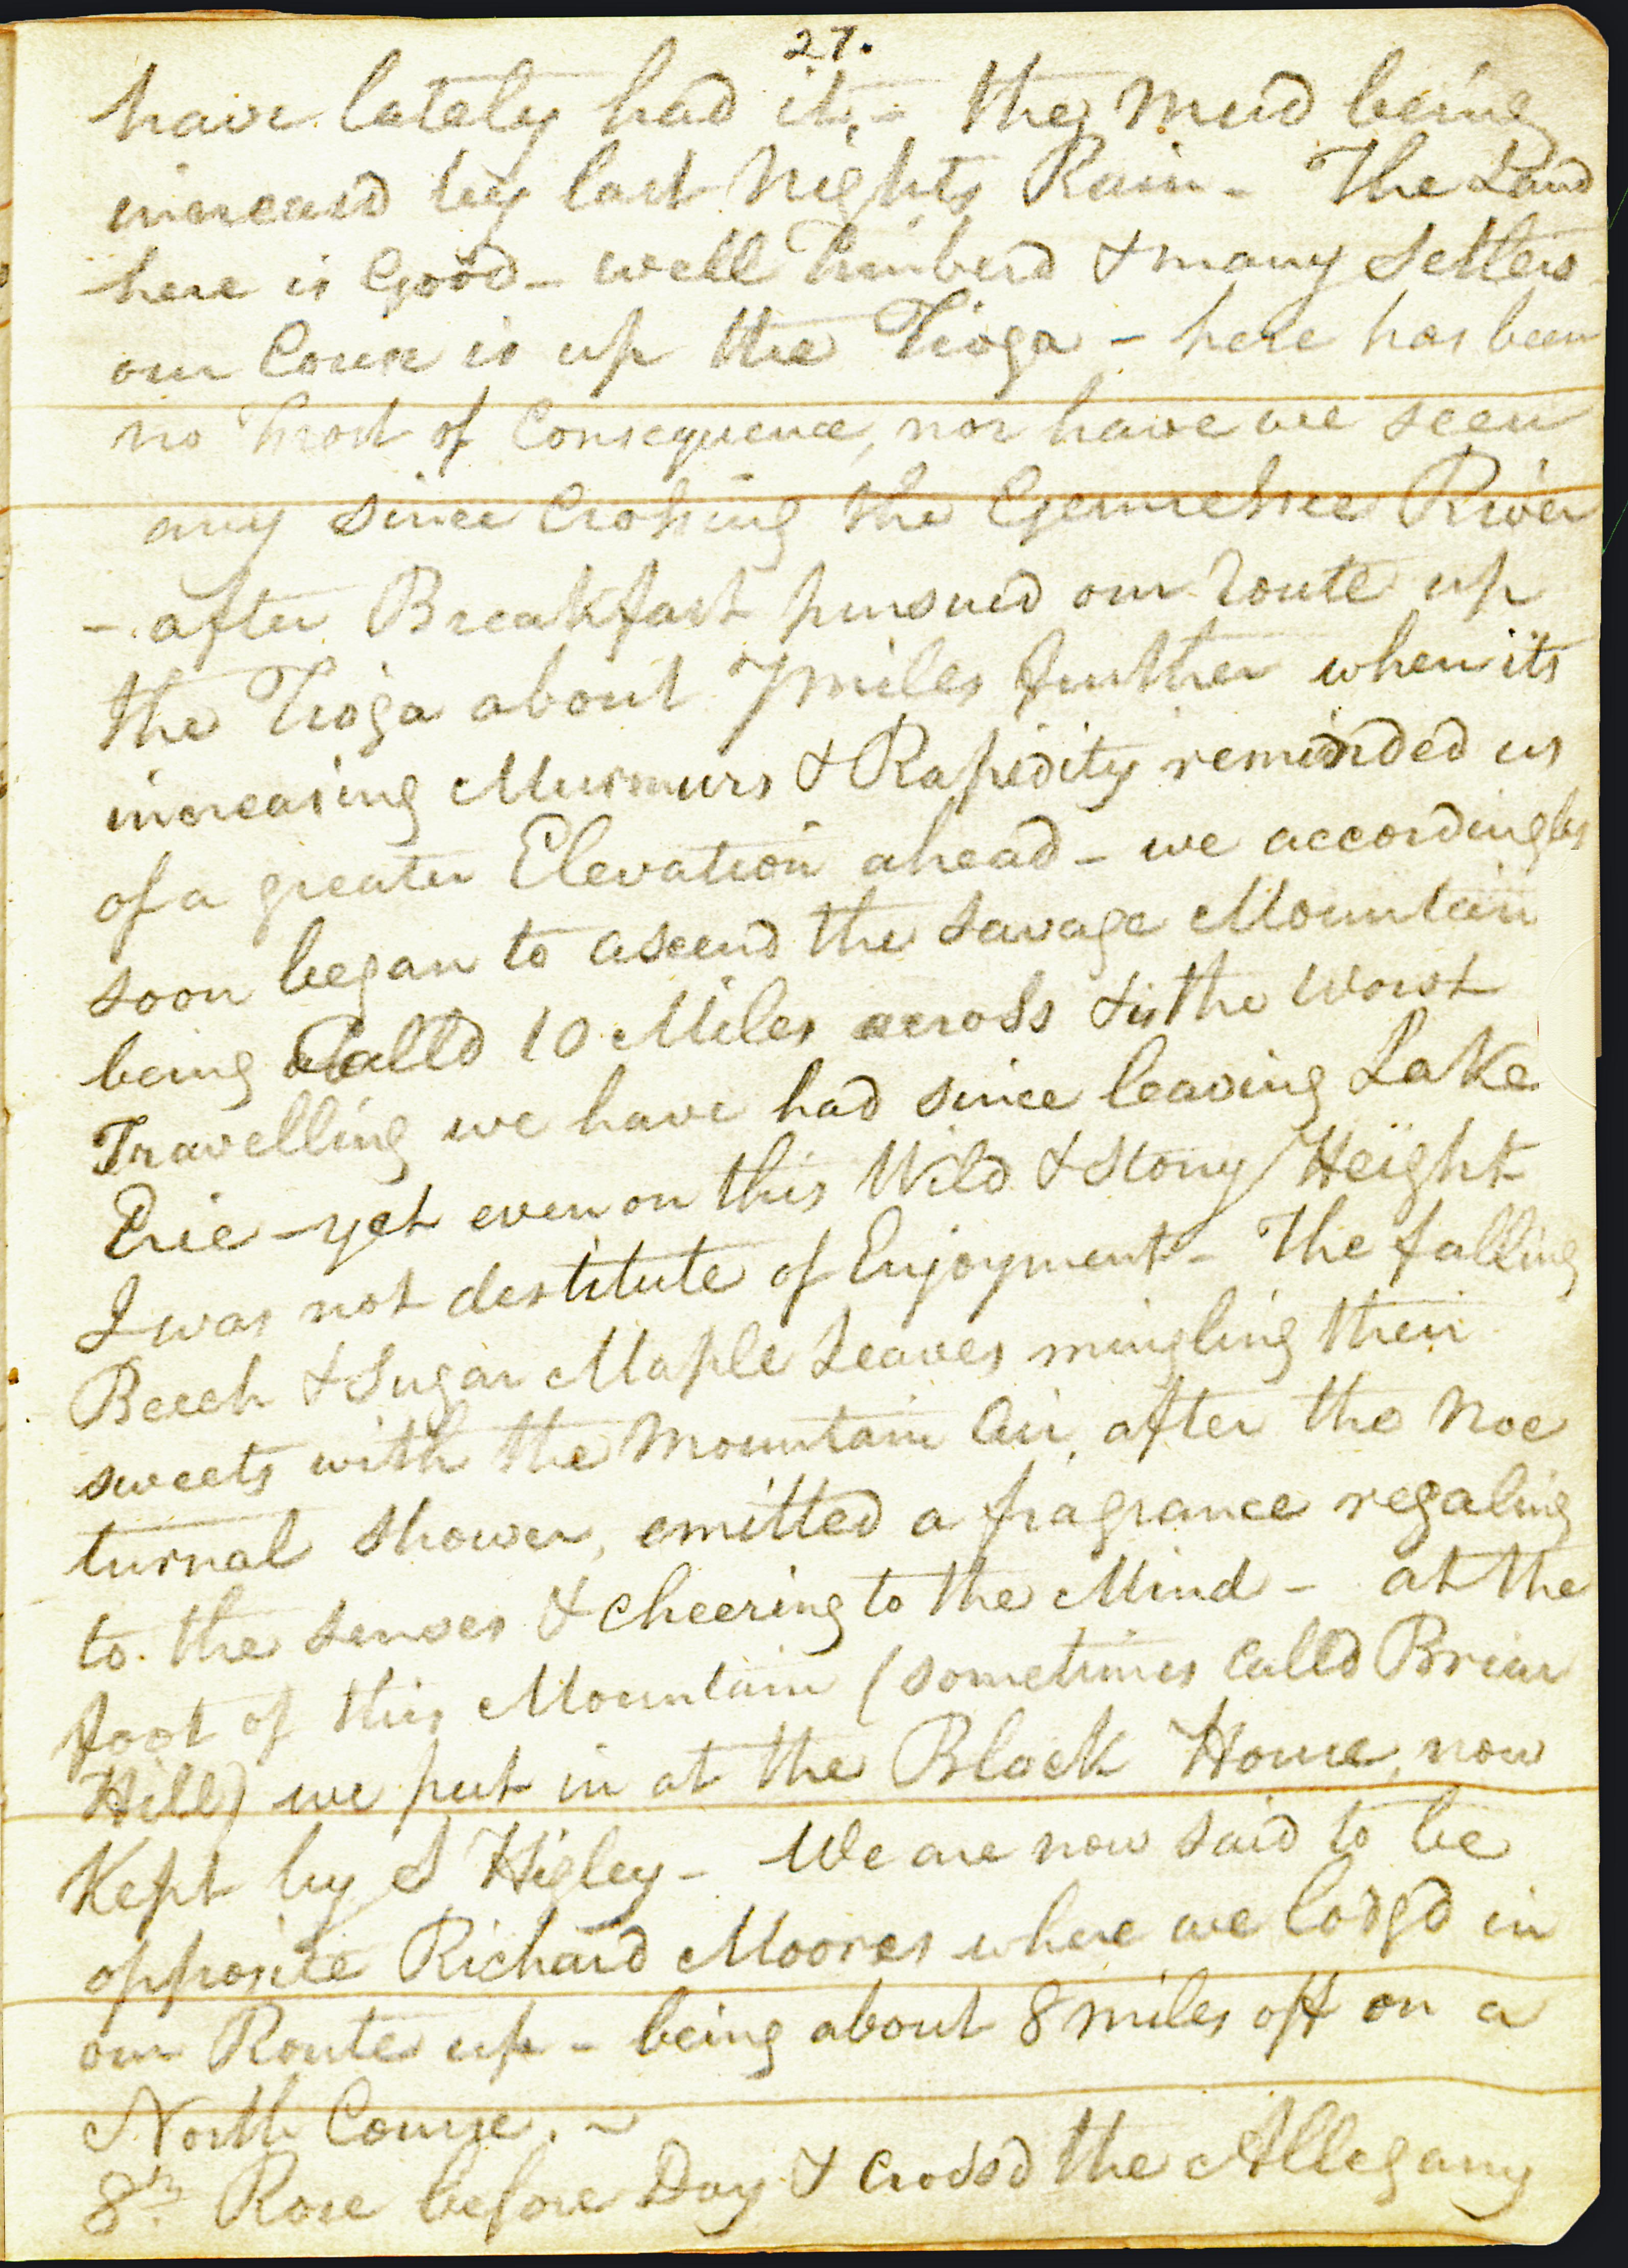 27.
have lately had it, - the mud being
increasd by last Nights Rain - The Land
here is Good - well Timberd & many Settlers
our Course is up the Tioga - here has been
no Frost of Consequence, nor have we seen
any since Crossing the Gennessee River
- after Breakfast pursued our route up
the Tioga about 7 miles further when its
increasing Murmurs & Rapidity reminded us
of a greater Elevation ahead - we accordingly
soon began to ascend the Savage Mountain
being Calld 10 Miles across & is the worst
Travelling we have had since leaving Lake
Erie - yet even on this Wild & Stony Height
I was not destitute of Enjoyment - The falling
Beech & Sugar Maple Leaves mingling their
sweets with the Mountain Air, after the noc
turnal Shower, emitted a fragrance regaling
to the senses & cheering to the Mind - at the
foot of this Mountain (sometimes Calld Briar
Hill) we put in at the Block House, now
Kept by S Higley - We are now said to be
opposite Richard Moores where we lodgd in
our Route up - being about 8 miles off on a
North Course. ~
8th Rose before Day & Crossd the Allegany